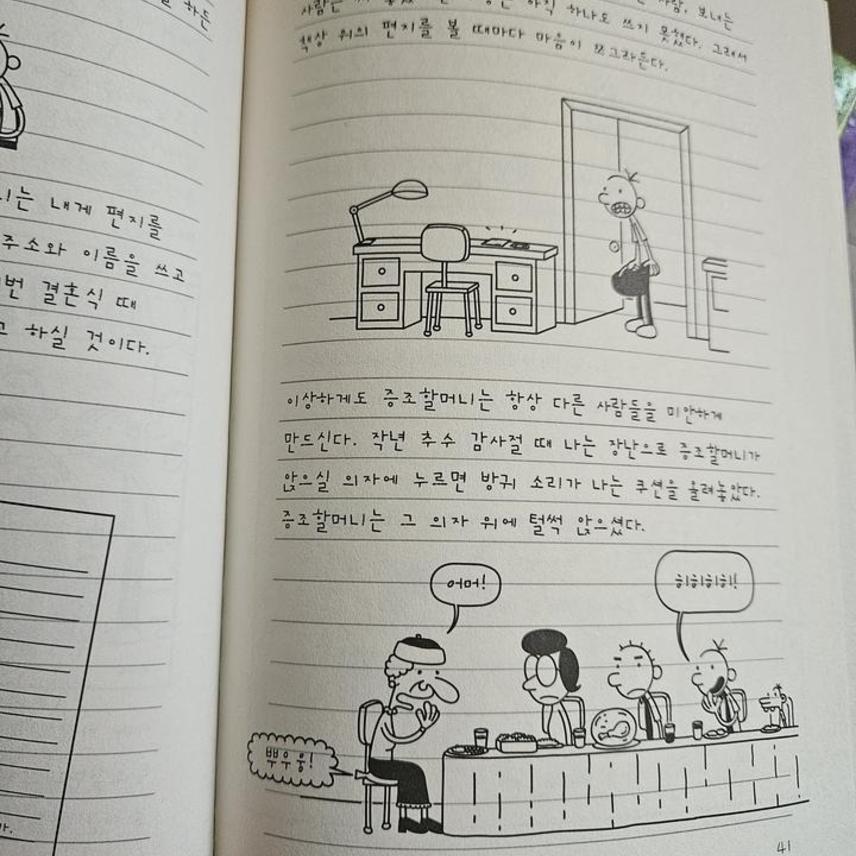 하든
니는 내게 편지를
주소와 이름을 쓰고
번 결혼식 때
고 하실 것이다.
사람, 보내는
사람은 아직 하나도 쓰지 못했다. 그래서
책상 위의 편지를 볼 때마다 마음이 쪼그라든다.
이상하게도 증조할머니는 항상 다른 사람들을 미안하게
만드신다. 작년 추수 감사절 때 나는 장난으로 증조할머니가
앉으실 의자에 누르면 방귀 소리가 나는 쿠션을 올려놓았다.
증조할머니는 그 의자 위에 털썩 앉으셨다.
어머!
히히히히!
뿌우웅!
41